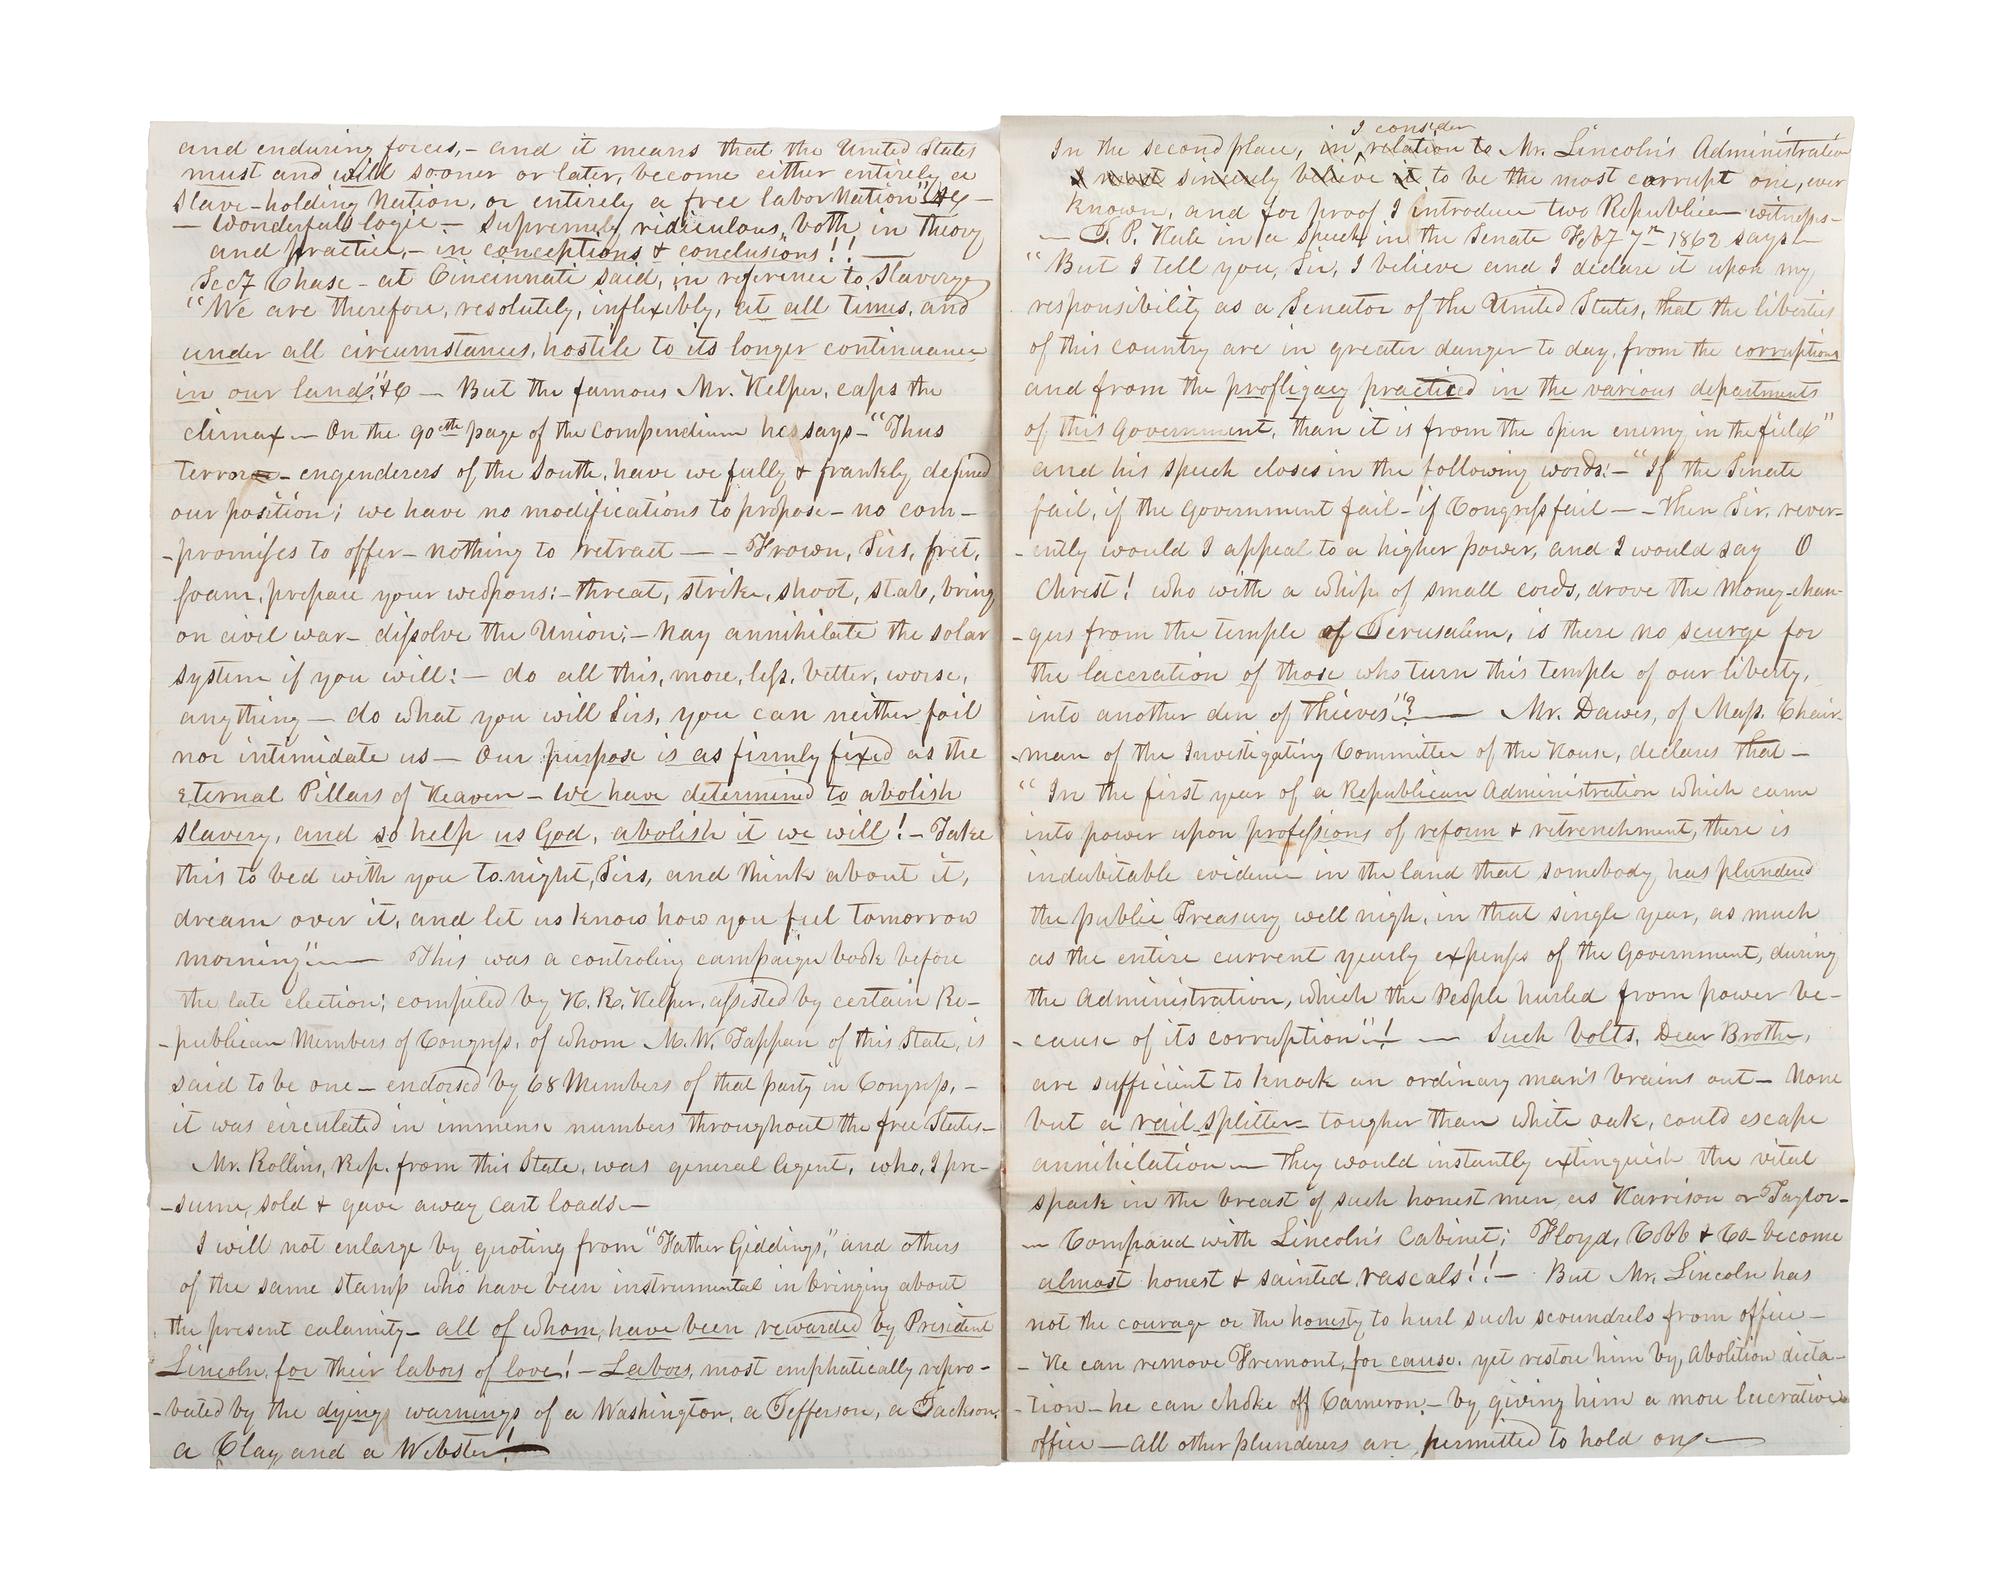 and enduring forces,- and it means that the United States
must and will sooner or later, become either entirely a
Slave-holding Nation, or entirely a free labor Nation" &c -
- Wonderful logic - Supremely ridiculous, both in theory
and practice,- in conceptions & conclusions!!
Sect Chase - at Cincinnati said, in reference to Slavery
"We are therefore, resolutely, inflexibly, at all times, and
under all circumstances, hostile to its longer continuance
in our land," &C — But the famous Mr. Helper, caps the
climax — On the 90th page of the compendium he says - "Thus
terror - engenderers of the South, have we fully & frankly defined
our position; we have no modifications to propose - no com-
-promises to offer - nothing to retract — - Frown, Sirs, fret,
foam, prepare your weapons:- threat, strike, shoot, stab, bring
on civil war - dissolve the Union;- Nay annihilate the solar
system if you will: - do all this, more, less, better, worse,
anything — do what you will Sirs, you can neither foil
nor intimidate us — Our purpose is as firmly fixed as the
Eternal Pillars of Heaven - We have determined to abolish
slavery, and so help us God, abolish it we will! - Take
this to bed with you to.night, Sirs, and think about it,
dream over it, and let us know how you feel tomorrow
morning" — This was a controling campaign book before
the late election; compiled by H. R. Helper, assisted by certain Re-
-publican Members of Congress, of whom M. W. Tappan of this State, is
said to be one - endorsed by 68 Members of that party in Congress, -
it was circulated in immense numbers throughout the free States -
Mr. Rollins, Rep. from this State, was general Agent, who, I pre-
-sume, sold & gave away cart loads —
I will not enlarge by quoting from "Father Giddings," and others
of the same stamp who have been instrumental in bringing about
the present calamity - all of whom, have been rewarded by President
Lincoln, for their labors of love! - Labors, most emphatically repro-
-bated by the dying warnings of a Washington, a Jefferson, a Jackson,
a Clay and a Webster!
I consider
In the second place, in relation to Mr. Lincoln's Administration
I must sincerely believe it to be the most corrupt one, ever
known, and for proof I introduce two Republican witnesses -
- J. P. Hale in a speech in the Senate Feb 7th 1862 says -
"But I tell you, Sir, I believe and I declare it upon my
responsibility as a Senator of the United States, that the liberties
of this country are in greater danger to day, from the corruptions
and from the profligacy practiced in the various departments
of this Government, than it is from the open enemy in the field"
and his speech closes in the following words:- "If the Senate
fail, if the Government fail - if Congress fail - - Then Sir, rever-
-ently would I appeal to a higher power, and I would say O
Christ! who with a whip of small cords, drove the Money-chan-
-gers from the temple of Jerusalem, is there no scurge for
the laceration of those who turn this temple of our liberty,
into another den of thieves"? — Mr. Dawes, of Mass. Chair-
-man of the Investigating Committee of the House, declares that -
"In the first year of a Republican Administration which came
into power upon professions of reform & retrenchment, there is
indubitable evidence in the land that somebody has plundered
the public Treasury well nigh, in that single year, as much
as the entire current yearly expenses of the Government, during
the Administration, which the People hurled from power be-
-cause of its corruption"! — Such bolts, Dear Brother,
are sufficient to knock an ordinary man's brains out - None
but a rail splitter - tougher than white oak, could escape
annihilation — They would instantly extinguish the vital
spark in the breast of such honest men, as Harrison or Taylor -
- Compared with Lincoln's Cabinet; Floyd, Cobb & Co become
almost honest & sainted rascals!! - But Mr. Lincoln has
not the courage or the honesty to hurl such scoundrels from office -
- He can remove Fremont, for cause, yet restore him by Abolition dicta-
-tion - he can choke off Cameron - by giving him a more lucrative
office — All other plunderers are permitted to hold on —